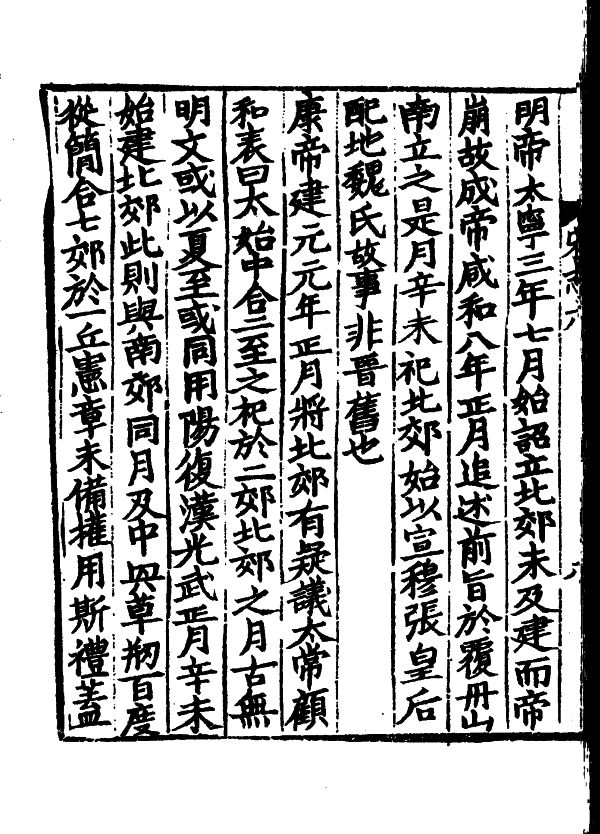 明帝太寧三年七月始詔立北郊未及建而帝
崩故成帝咸和八年正月追述前旨於覆舟山
南立之是月辛未祀北郊始以宣穆張皇后
配地魏氏故事非晉舊也
康帝建元元年正月將北郊有疑議太常顧
和表曰太始中合二至之祀於二郊北郊之月古無
明文或以夏至或同用陽復漢光武正月辛未
始建北郊此則與南郊同月及中興草剏百度
從簡合七郊於一丘憲章未備權用斯禮蓋